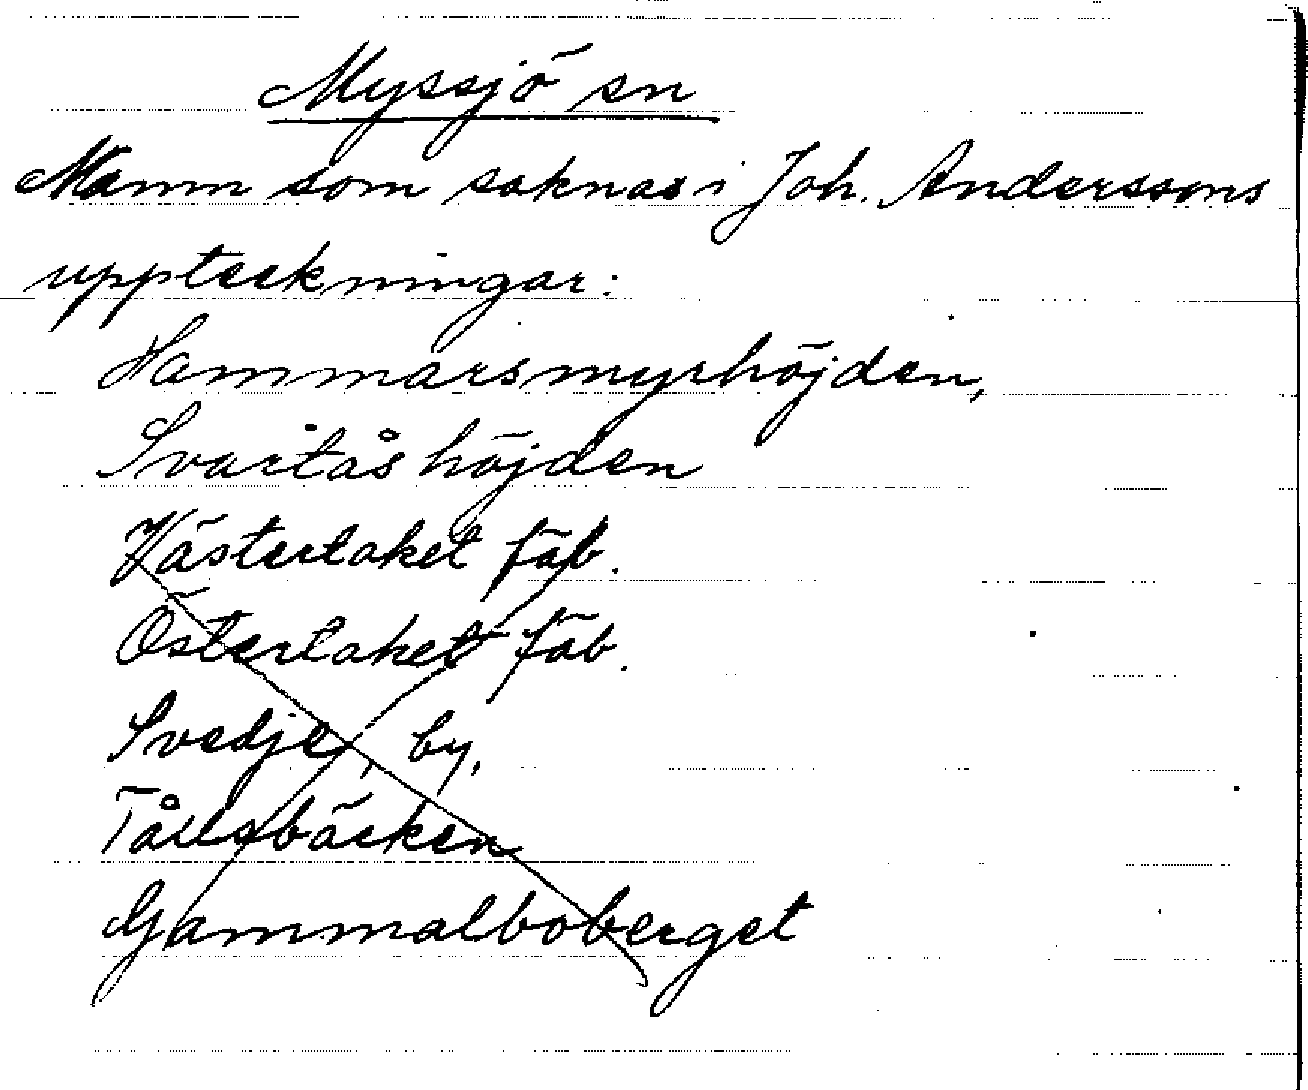 Myssjö sn
Namn som saknas i Joh. Anderssons
uppteckningar:
Hammarsmyrhöjden,
Svartåshöjden
Västerlaket fäb.
Österlaket fäb.
Svedje, by,
Tållsbäcken
Gammalboberget